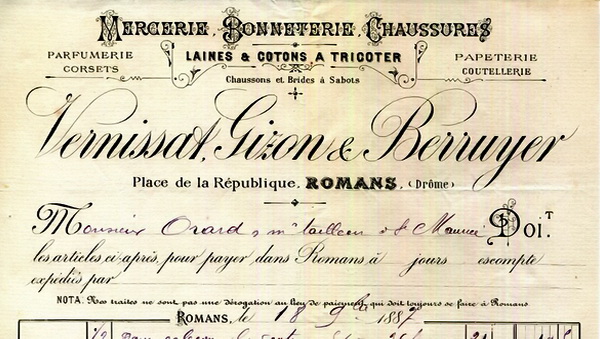 MERCERIE, BONNETERIE, CHAUSSURES
PARFUMERIE
CORSETS
LAINES & COTONS A TRICOTER
Chaussons et Brides à Sabots
PAPETERIE
COUTELLERIE
Vernissat, Gizon & Berruyer
Place de la République. ROMANS. (Drôme)
Monsieur md tailleur à St Maurice DOI.T
les articles ci-après, pour payer dans Romans à jours escompte
expédiés par
NOTA. Nos traites ne sont pas une dérogation au lieu de paiement qui doit toujours se faire à Romans
ROMANS, le 18 9bre 1887
1/2